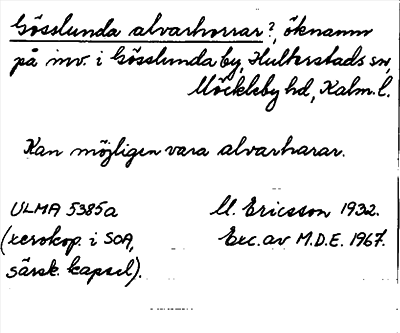 Gösslunda alvarhorrar?, öknamn
på inv. i Gösslunda by, Hulterstads sn,
Möckleby hd, Kalm. l.
Kan möjligen vara alvarharar.
ULMA 5385a M. Ericsson 1932.
(xerokop. i SOA, Exc. av M.D.E. 1967.
särsk. kapsel).